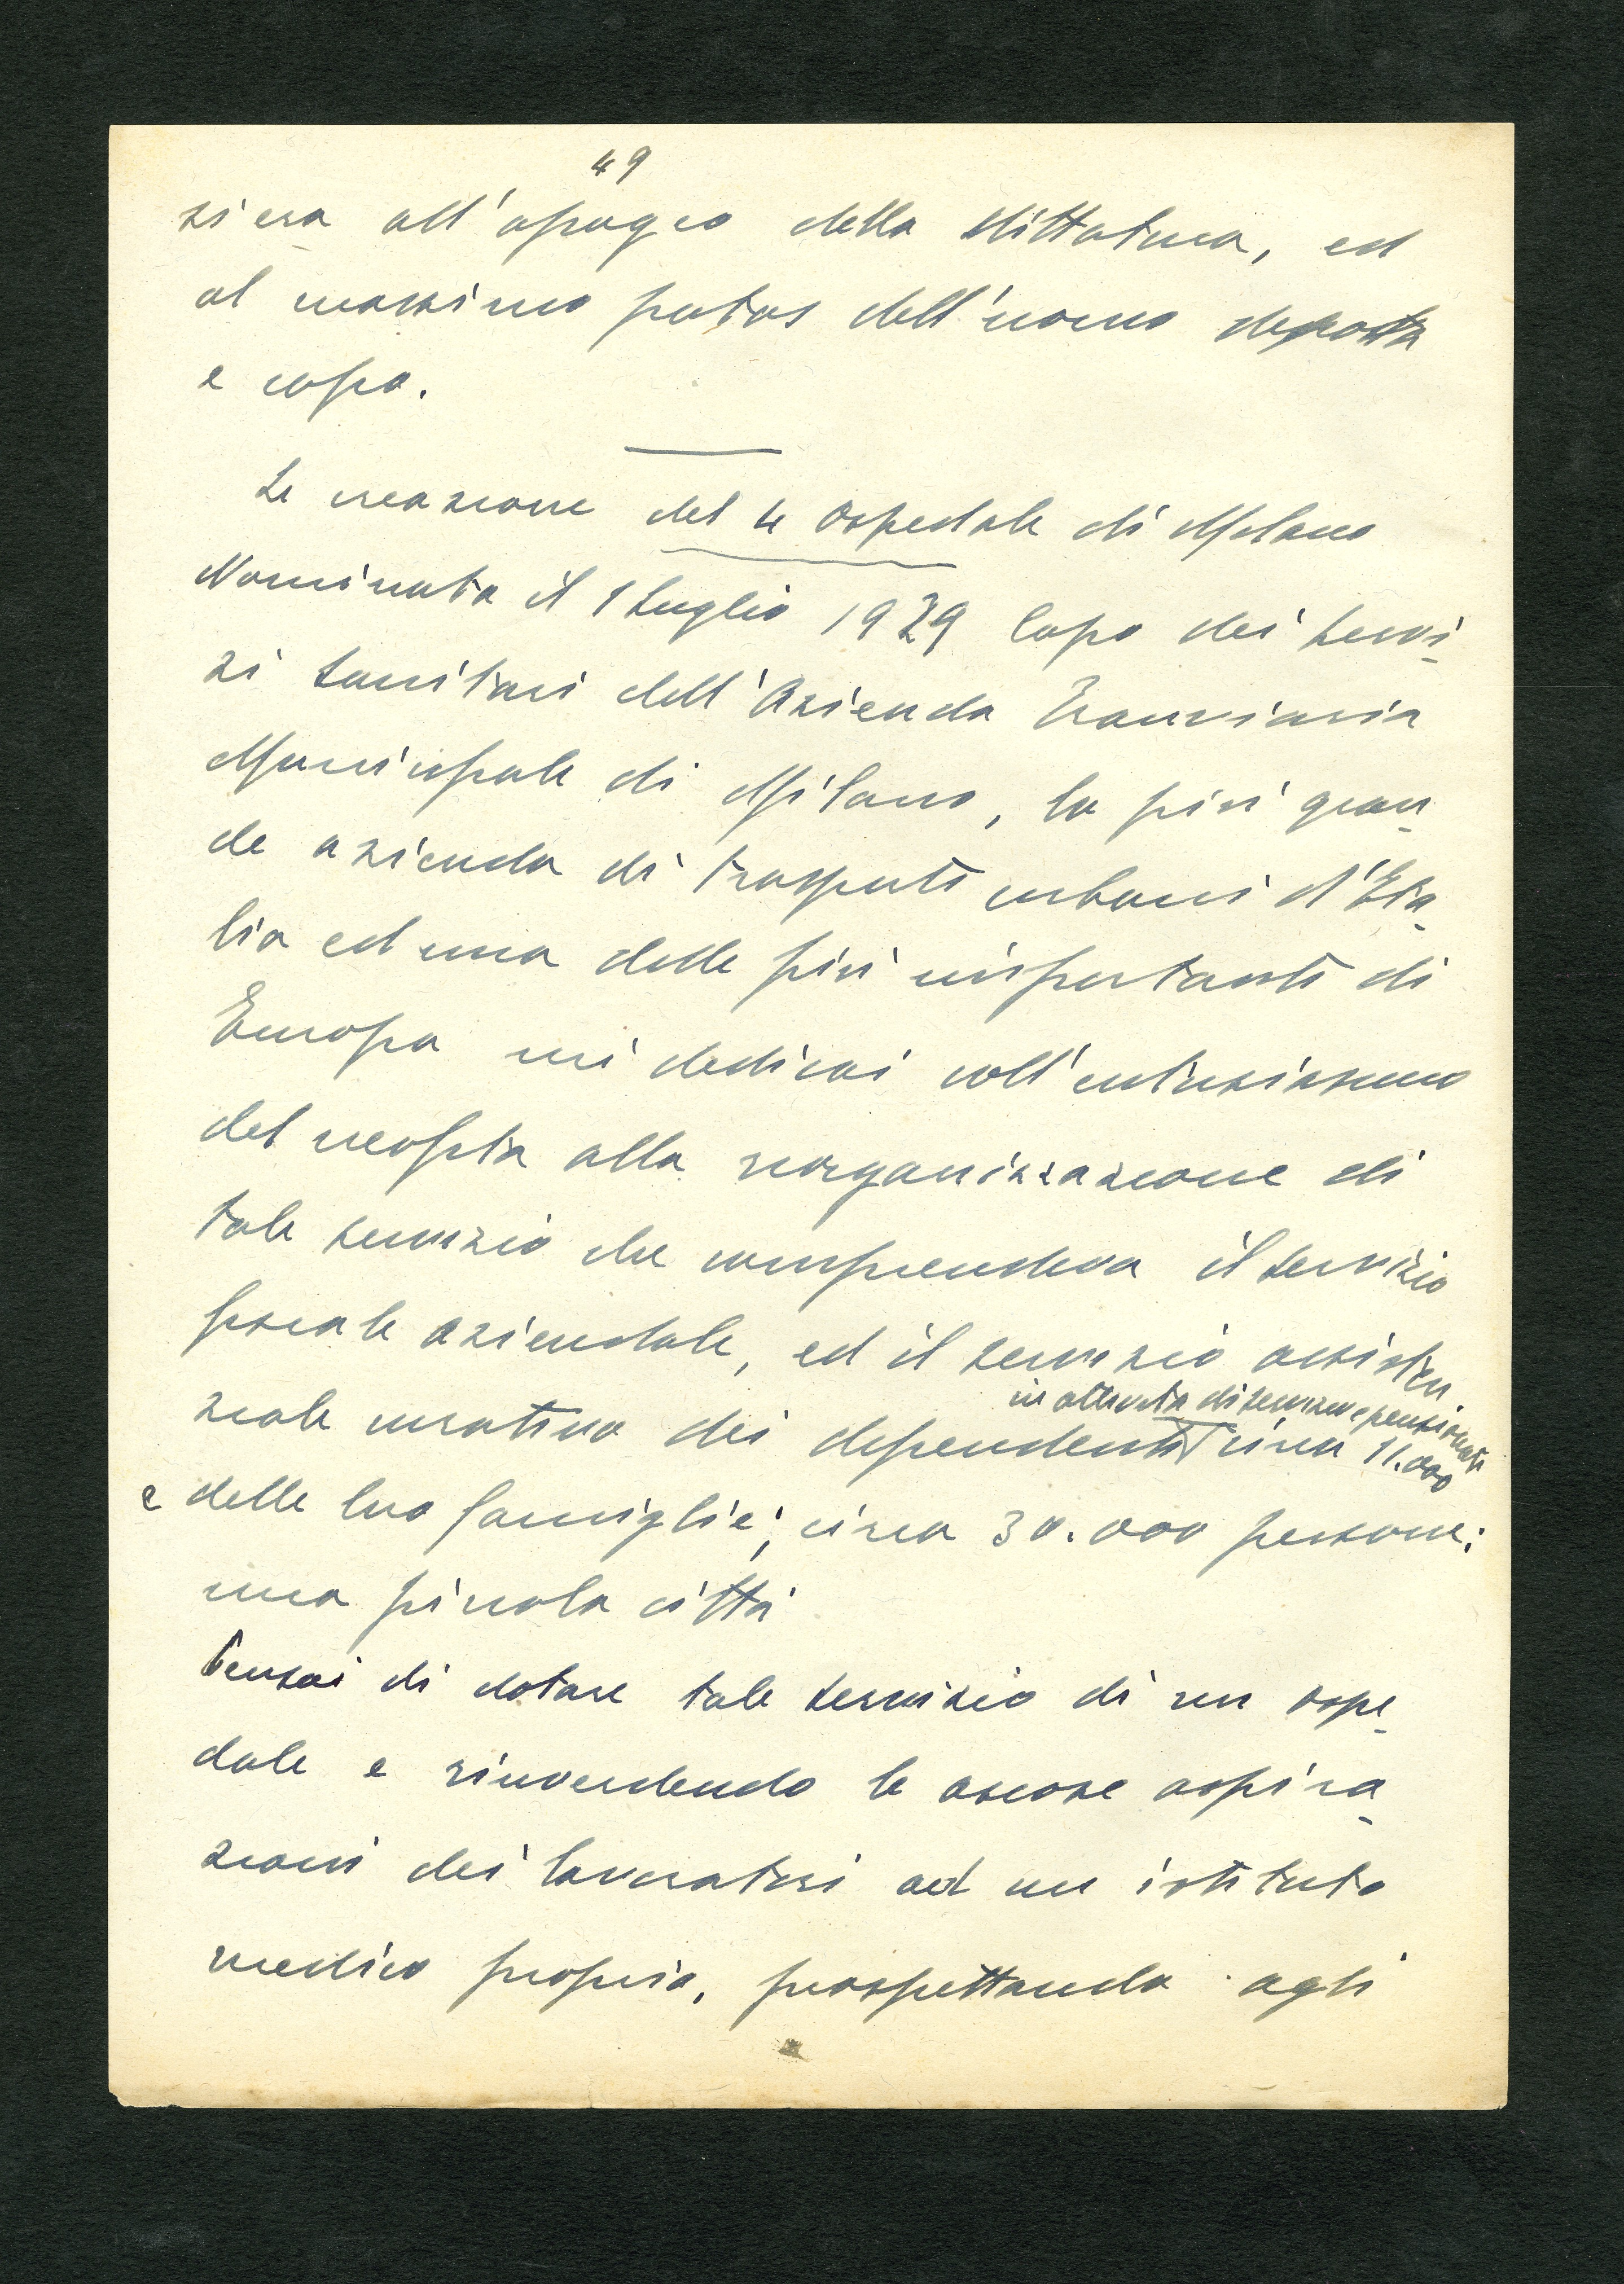 49
si era all'apogeo della dittatura, ed
al massimo potere dell'uomo despota
e capo.
La creazione del 4 ospedale di Milano
Nominato il 1 Luglio 1929 Capo dei servi-
zi sanitari dell'Azienda Tranviaria
Municipale di Milano, la più gran-
de azienda di trasporti urbani d'Ita-
lia ed una delle più importanti di
Europa mi dedicai coll'entusiasmo
del neofita alla riorganizzazione di
tale servizio che comprendeva il servizio
fiscale aziendale, ed il servizio assisten
in attività di servizio e pensionati
ziale curativo dei dipendenti circa 11.000
e delle loro famiglie; circa 30.000 persone:
una piccola città
Pensai di dotare tale servizio di un ospe-
dale e rinverdendo le ascose aspira-
zioni dei lavoratori ad un istituto
medico proprio, prospettando agli